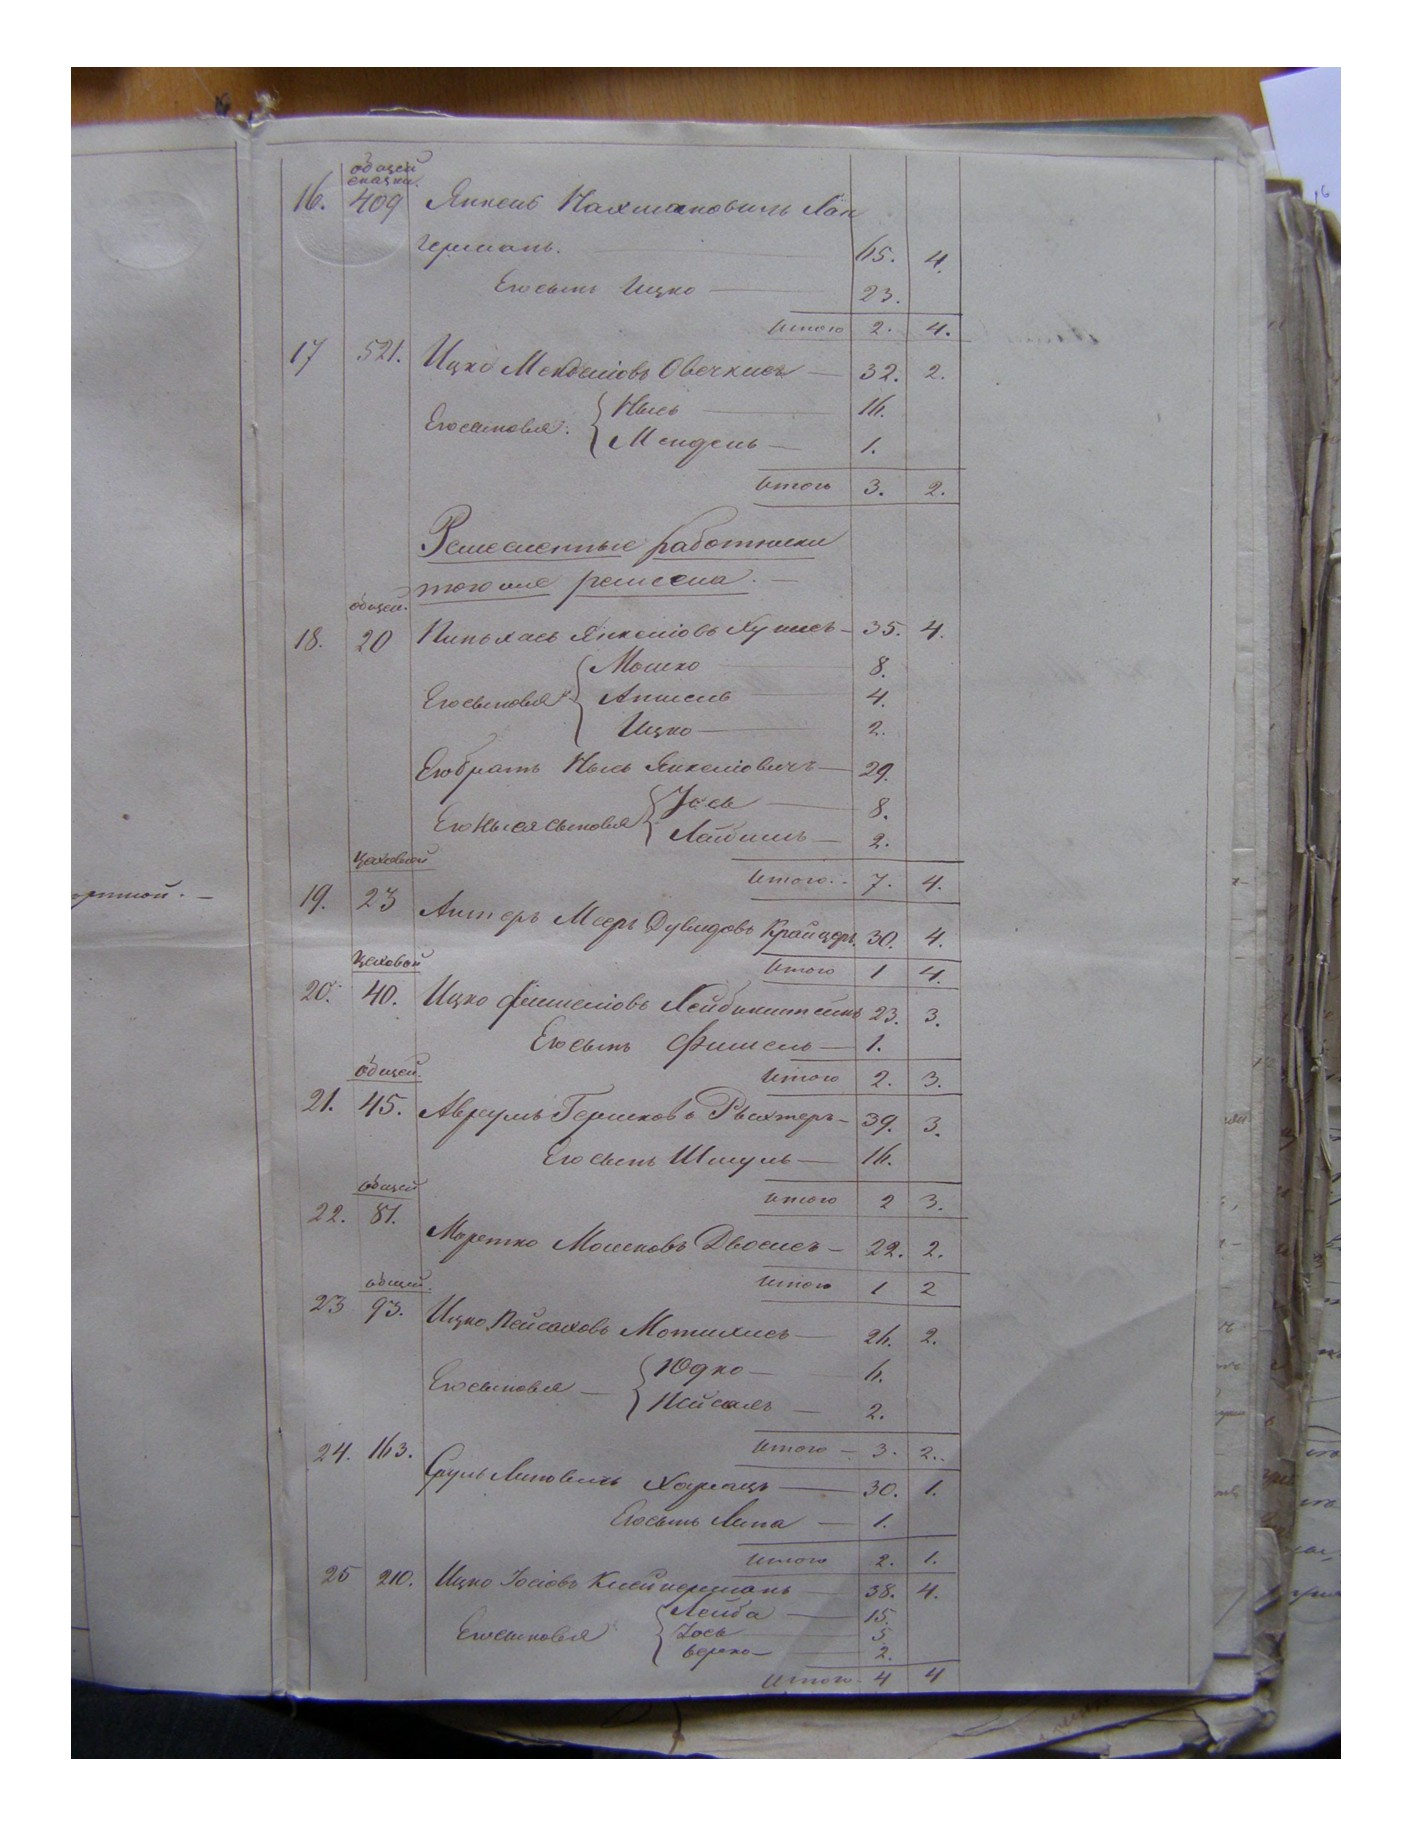 общей
сказки.
16. 409 Янкель Нахмановичь Лан
германъ. 65. 4.
Его сынъ Ицко 23.
Итого 2. 4.
17 521. Ицко Менделiовъ Овечкисъ 32. 2.
Его сыновья: Нысь 16.
Мендель 1.
Итого 3. 2.
Ремесленные работники
тогоже ремесла.
общей.
18. 20 Пинькасъ Янкелiовъ Кушисъ 35. 4.
Его сыновья Мошко 8.
Аншель 4.
Ицко 2.
Его братъ Нысь Янкелiовичъ 29.
Его Ныся сыновья Iось 8.
Лейбишъ 2.
Итого 7. 4.
цеховой
19. 23 Антеръ Мееръ Дувидовъ Крайцеръ 30. 4.
Итого 1 4.
цеховой
20. 40. Ицко Фишелiовъ Лейбинштейнъ 23. 3.
Его сынъ Фишель 1.
Итого 2. 3.
общей.
21. 45. Авреумъ Гершковъ Рыхтеръ 39. 3.
Его сынъ Шмуль 16.
Итого 2 3.
общей
22. 81. Моретко Мошковъ Двосисъ 22. 2.
Итого 1 2
общей.
23 93. Ицко Пейсаховъ Мотихисъ 26. 2.
Его сыновья Юдко 6.
Пейсахъ 2.
Итого 3. 2.
24. 163. Сруль Липовичъ Харацъ 30. 1.
Его сынъ Липа 1.
Итого 2. 1.
25 210. Ицко Iосiовъ Клейнерманъ 38. 4.
Его сыновья Лейба 15.
Iось 5
Берко 2.
Итого 4 4
ортной.